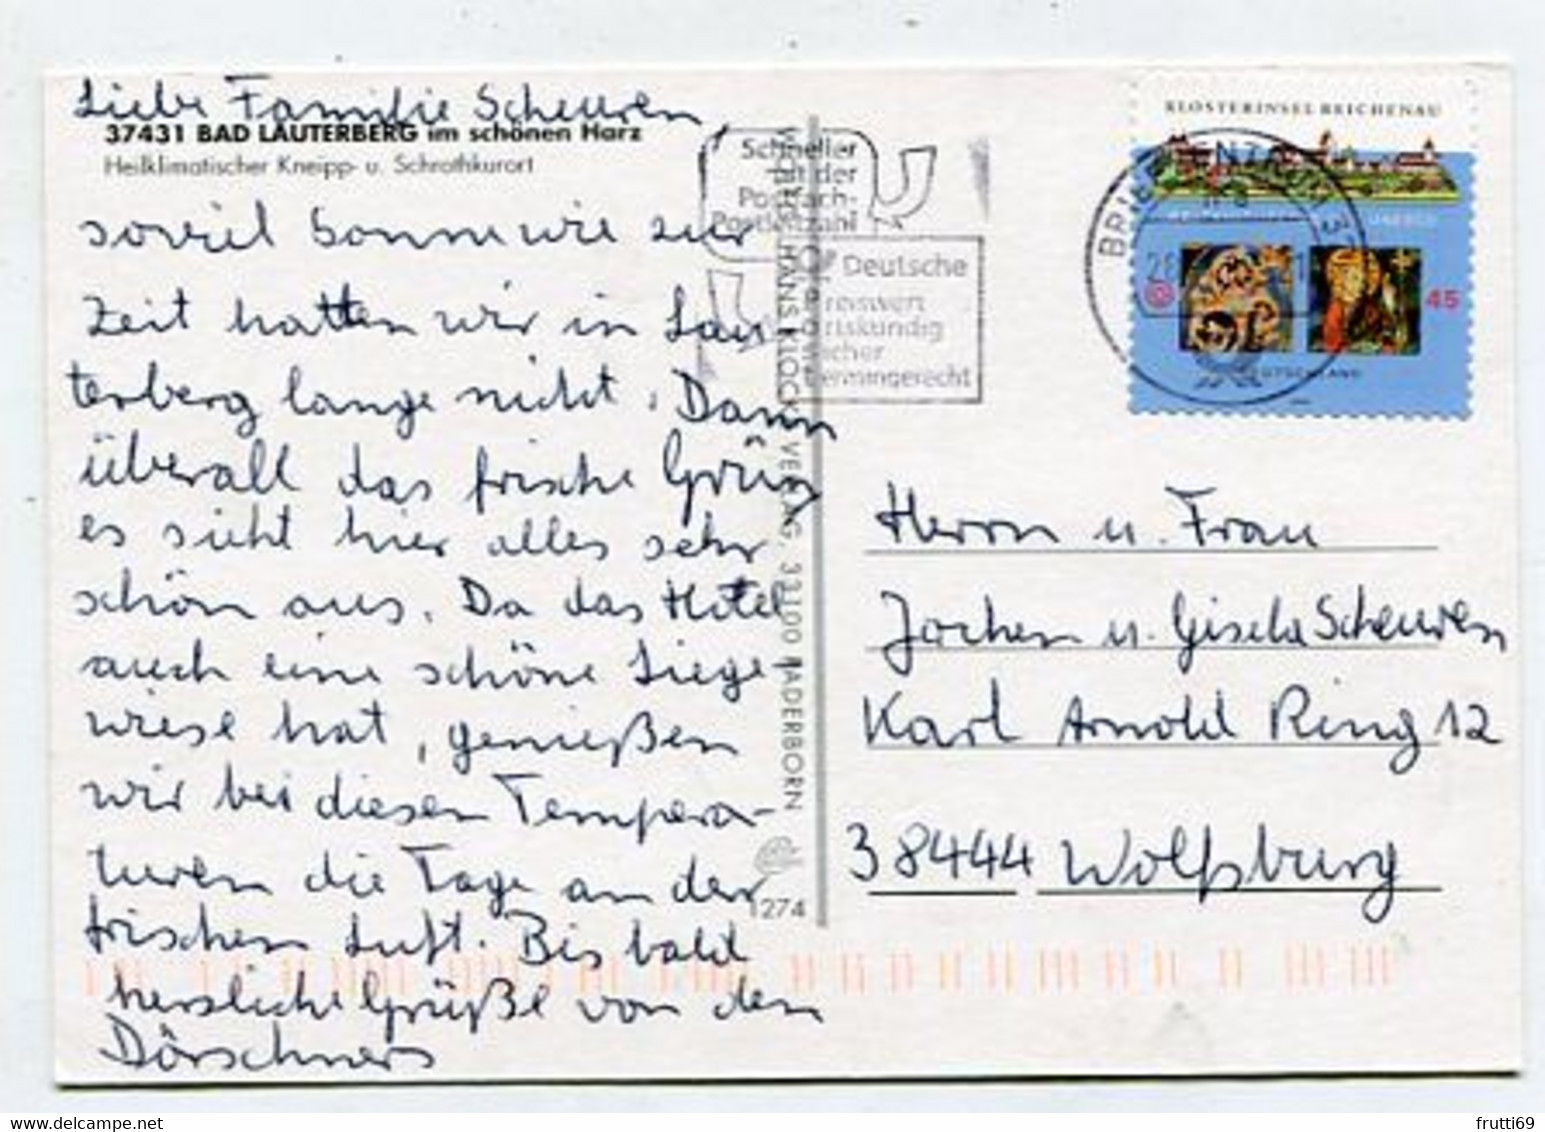 Liebe Familie Scheuren,
37431 BAD LAUTERBERG im schönen Harz
Heilklimatischer Kneipp- u. Schrothkurort
soviel Sonne wie zur
Zeit hatten wir in Lau-
terberg lange nicht. Dann
überall das frische Grün
es sieht hier alles sehr
schön aus. Da das Hotel
auch eine schöne Liege
wiese hat, genießen
wir bei diesen Tempera-
turen die Tage an der
frischen Luft. Bis bald
herzliche Grüße von den
Dörschners
VERLAG, 33100 PADERBORN
1274
Schneller
mit der
Postfach-
Postleitzahl
Deutsche
Preiswert
Ortskundig
Sicher
Termingerecht
BRIEFZENTRUM
KLOSTERINSEL REICHENAU
45
DEUTSCHLAND
Herrn u. Frau
Jochen u. Gisela Scheuren
Karl Arnold Ring 12
38444 Wolfsburg
frutti69